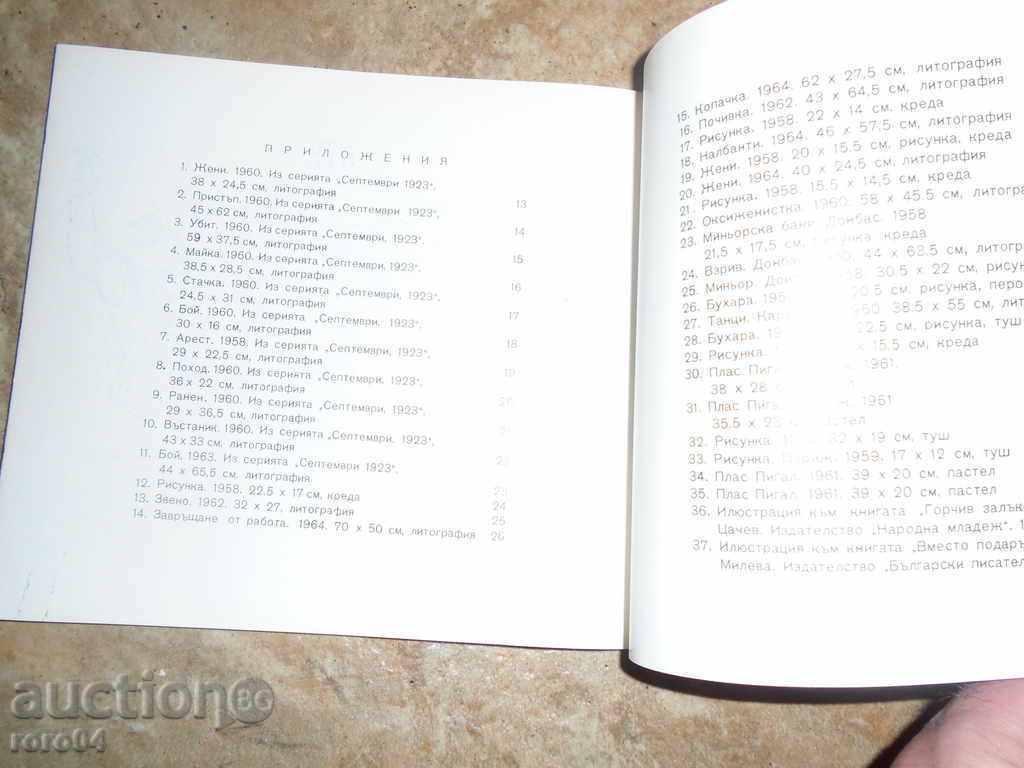 ПРИЛОЖЕНИЯ
1. Жени. 1960. Из серията „Септември 1923“,
38 x 24,5 см, литография 13
2. Пристъп. 1960. Из серията „Септември 1923“,
45 x 62 см, литография 14
3. Убит. 1960. Из серията „Септември, 1923“,
59 x 37,5 см, литография 15
4. Майка. 1960. Из серията „Септември, 1923“,
38,5 x 28,5 см, литография 16
5. Стачка. 1960. Из серията „Септември, 1923“,
24,5 x 31 см, литография 17
6. Бой. 1960. Из серията „Септември, 1923“,
30 x 16 см, литография 18
7. Арест. 1958. Из серията „Септември, 1923“,
29 x 22,5 см, литография 19
8. Поход. 1960. Из серията „Септември, 1923“,
36 x 22 см, литография 20
9. Ранен. 1960. Из серията „Септември, 1923“,
29 x 36,5 см, литография
10. Въстаник. 1960. Из серията „Септември, 1923“,
43 x 33 см, литография
11. Бой. 1963. Из серията „Септември 1923“,
44 x 65,5 см, литография
12. Рисунка. 1958. 22,5 x 17 см, креда 23
13. Звено. 1962. 32 x 27, литография 24
14. Завръщане от работа. 1964. 70 x 50 см, литография 25
26
15. Копачка. 1964. 62 x 27,5 см, литография
16. Почивка. 1962. 43 x 64,5 см, литография
17. Рисунка. 1958. 22 x 14 см, креда
18. Налбанти. 1964. 46 x 57,5 см, литография
19. Жени. 1958. 20 x 15.5 см, рисунка, креда
20. Жени. 1964. 40 x 24,5 см, литография
21. Рисунка. 1958. 15.5 x 14,5 см, креда
22. Оксиженистка. 1960. 58 x 45.5 см,
23. Миньорска баня. Донбас. 1958
21,5 x 17,5 см, рисунка, креда
24. Взрив. 44 x 63.5 см,
25. Миньор. 30.5 x 22 см,
26. Бухара. 20.5 см, рисунка, перо
27. Танци. 1960. 38.5 x 55 см,
28. Бухара. 22.5 см, рисунка, туш
29. Рисунка. x 15.5 см, креда
30. Плас 1961.
38 x 28
31. Плас 1961
35.5 x
32. Рисунка. 32 x 19 см, туш
33. Рисунка. Париж. 1959. 17 x 12 см, туш
34. Плас Пигал. 1961. 39 x 20 см, пастел
35. Плас Пигал. 1961. 39 x 20 см, пастел
36. Илюстрация към книгата „Горчив
Цачев. Издателство „Народна младеж“.
37. Илюстрация към книгата „Вместо
Милева. Издателство „Български
auction BG
roro04